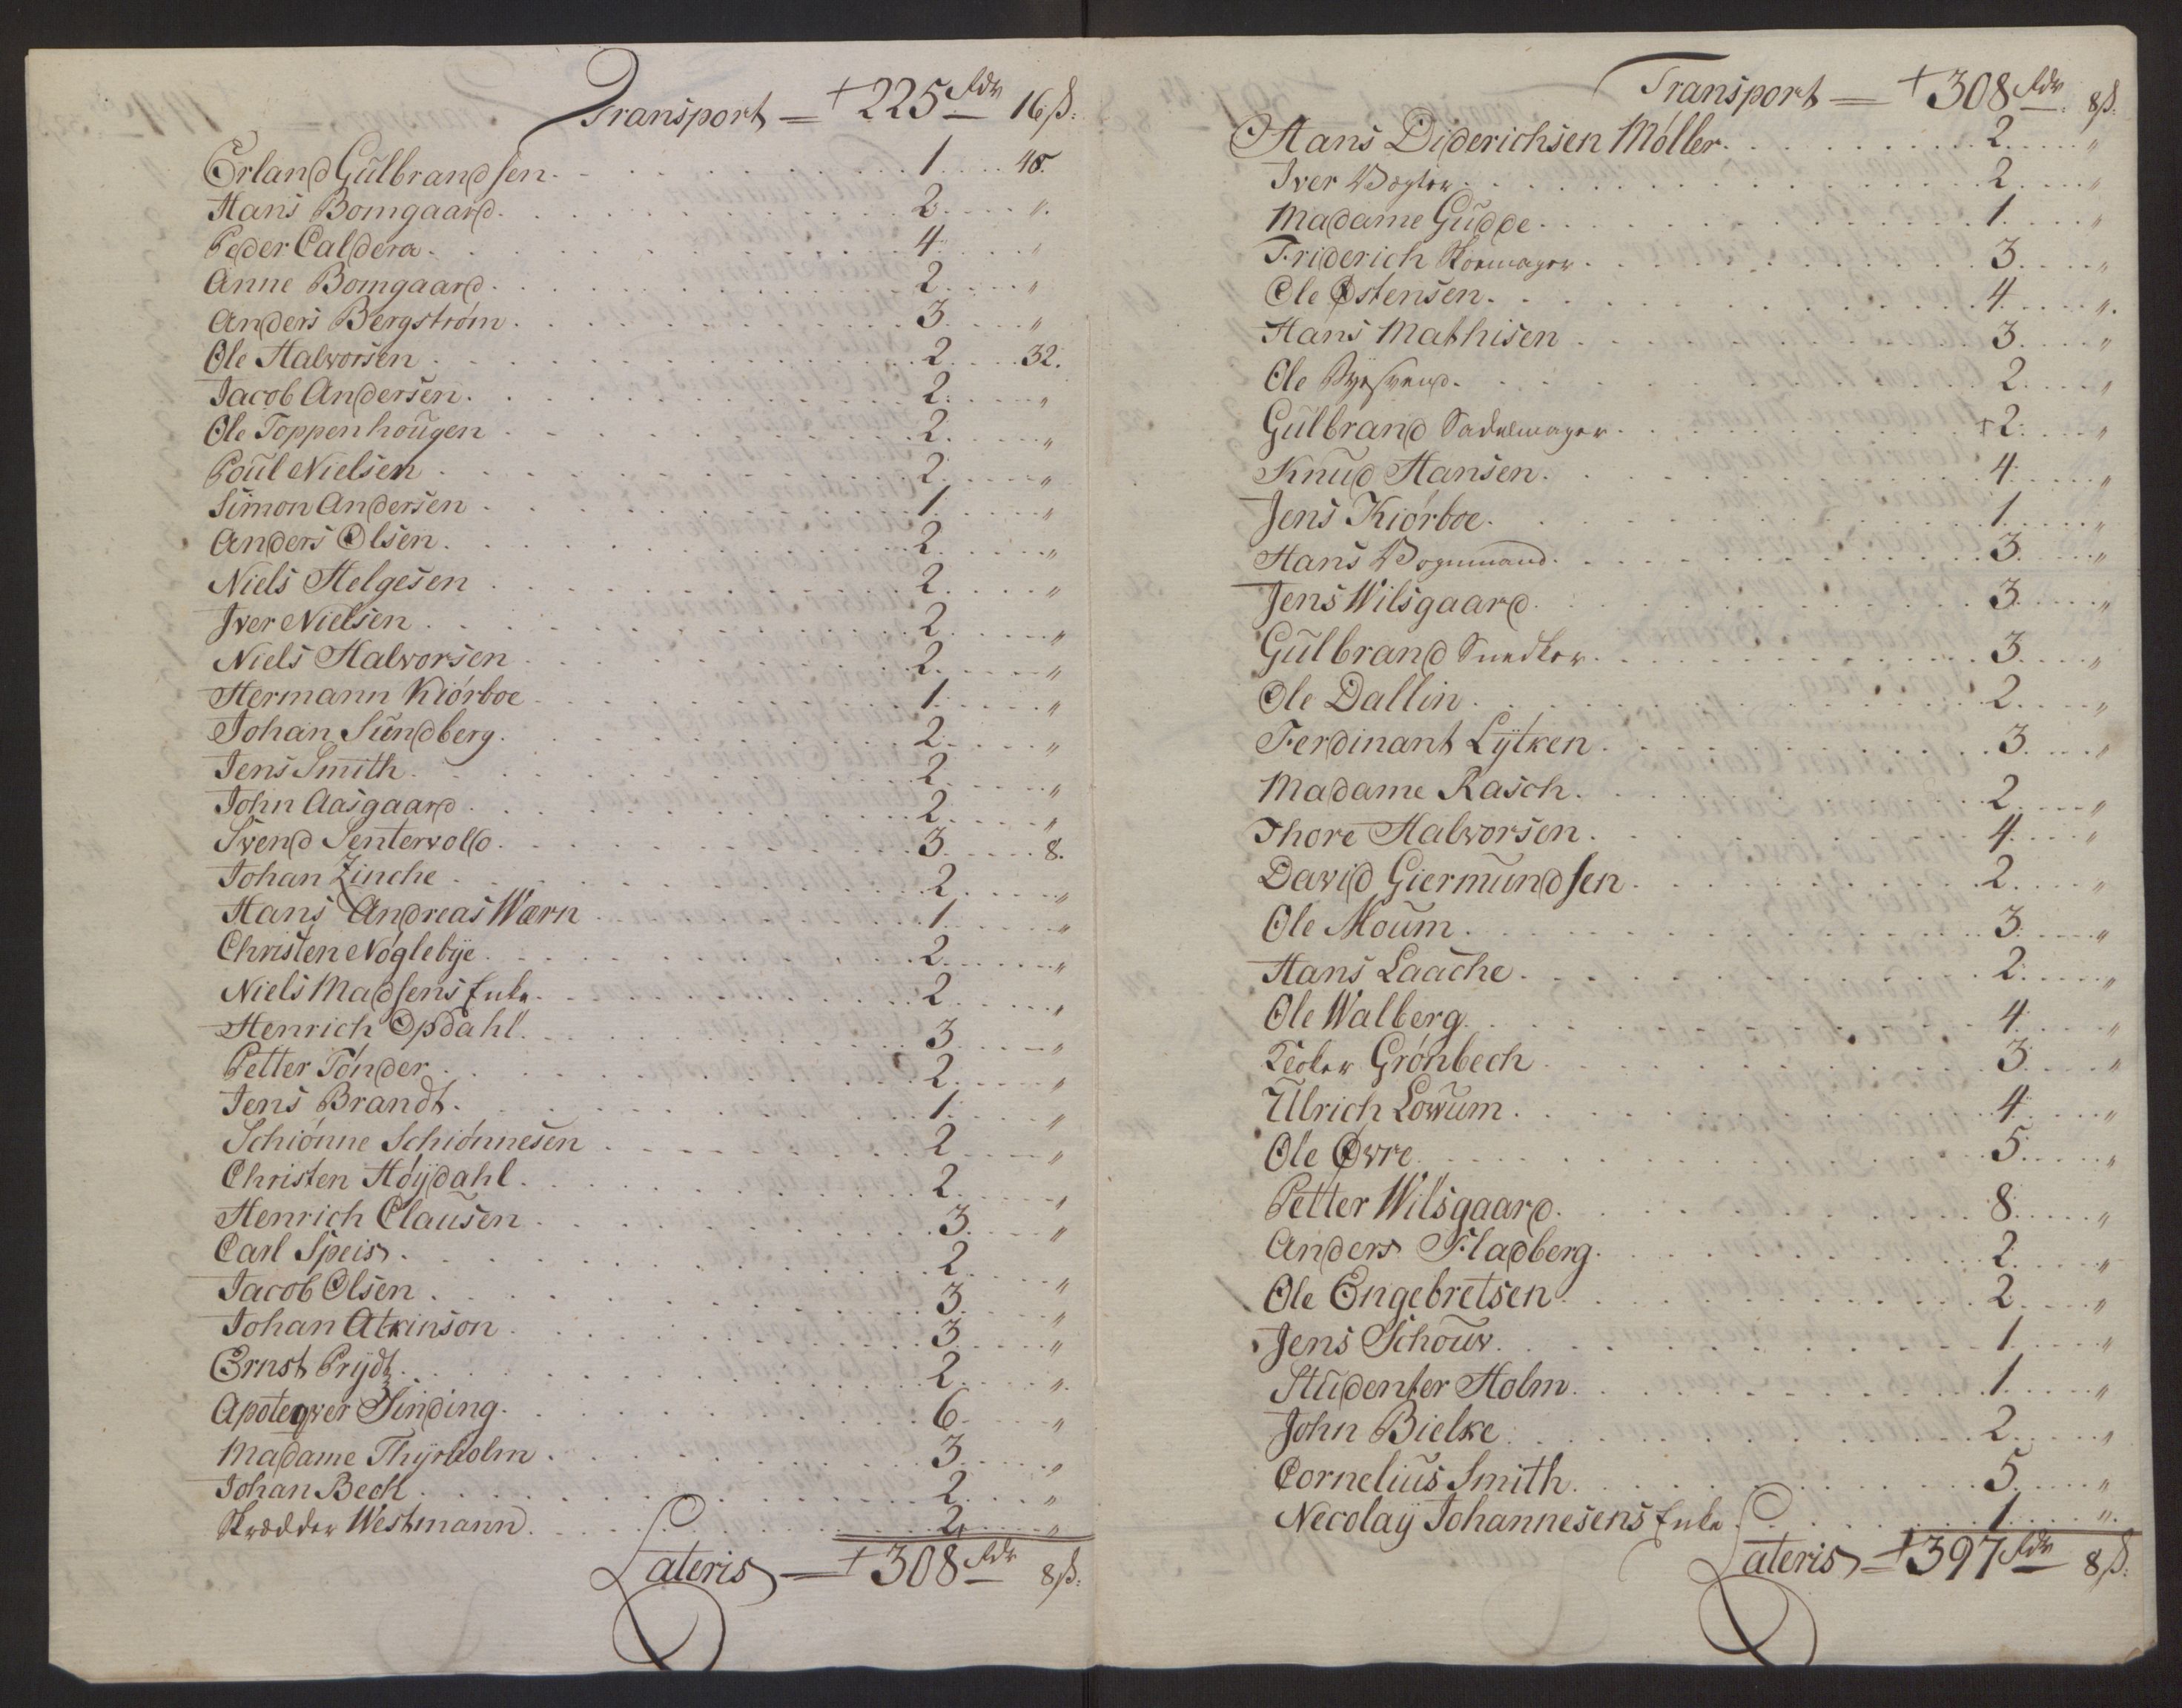 Transport = + 225 Rdr 16 ß:
Erland Gulbrandsen 1 48.
Hans Bomgaard 2 "
Peder Caldera 4 "
Anne Bomgaard 2 "
Anders Bergstróm 3 "
Ole Halvorsen 2 32.
Jacob Andersen 2 "
Ole Toppenhougen 2 "
Poul Nielsen 2 "
Simon Andersen 1 "
Anders Olsen 2 "
Niels Helgesen 2 "
Iver Nielsen 2 "
Niels Halvorsen 2 "
Hermann Kiórboe 1 "
Johan Sundberg 2 "
Jens Smith 2 "
John Aasgaard 2 "
Svend Sentervold 3 8.
Johan Zinche 2 "
Hans Andreas Wærn 1 "
Christen Nóglebÿe 2 "
Niels Madsens Enke 2 "
Henrich Opdahl 3 "
Petter Tónder 2 "
Jens Brandt 1 "
Schiónne Schiónnesen 2 "
Christen Hóÿdahl 2 "
Henrich Clausen 3 "
Carl Speis 2 "
Jacob Olsen 3 "
Johan Atkinson 3 "
Ernst Prÿdtz 2 "
Apoteqver Sinding 6 "
Madame Thÿrholm 3 "
Johan Beck 2 "
Skrædder Westmann 2 "
Lateris = + 308 Rdr 8 ß:
Transport = + 308 Rdr 8 ß.
Hans Diderichsen Móller 2 "
Iver Vægter 2 "
Madame Gudde 1 "
Friderich Skoemager 3 "
Ole Østensen 4 "
Hans Mathisen 3 "
Ole 2 "
Gulbrand Sadelmager +2 "
Knud Hansen 4 "
Jens Kiórboe 1 "
Hans Vognmand 3 "
Jens Wilsgaard 3 "
Gulbrand Snedker 3 "
Ole Dallin 2 "
Ferdinant Lÿtken 3 "
Madame Rasch 2 "
Thore Halvorsen 4 "
David Giermundsen 2 "
Ole Moum 3 "
Hans Laache 2 "
Ole Walberg 4 "
Grónbech 3 "
Ulrich Lowum 4 "
Ole Øvre 5 "
Petter Wilsgaard 8 "
Anders Fladberg 2 "
Ole Engebretsen 2 "
Jens Schouw 1 "
Studenter Holm 1 "
John Bielke 2 "
Cornelius Smith 5 "
Necolaÿ Johannesens Enke 1 "
Lateris = + 397 Rdr 8 ß.